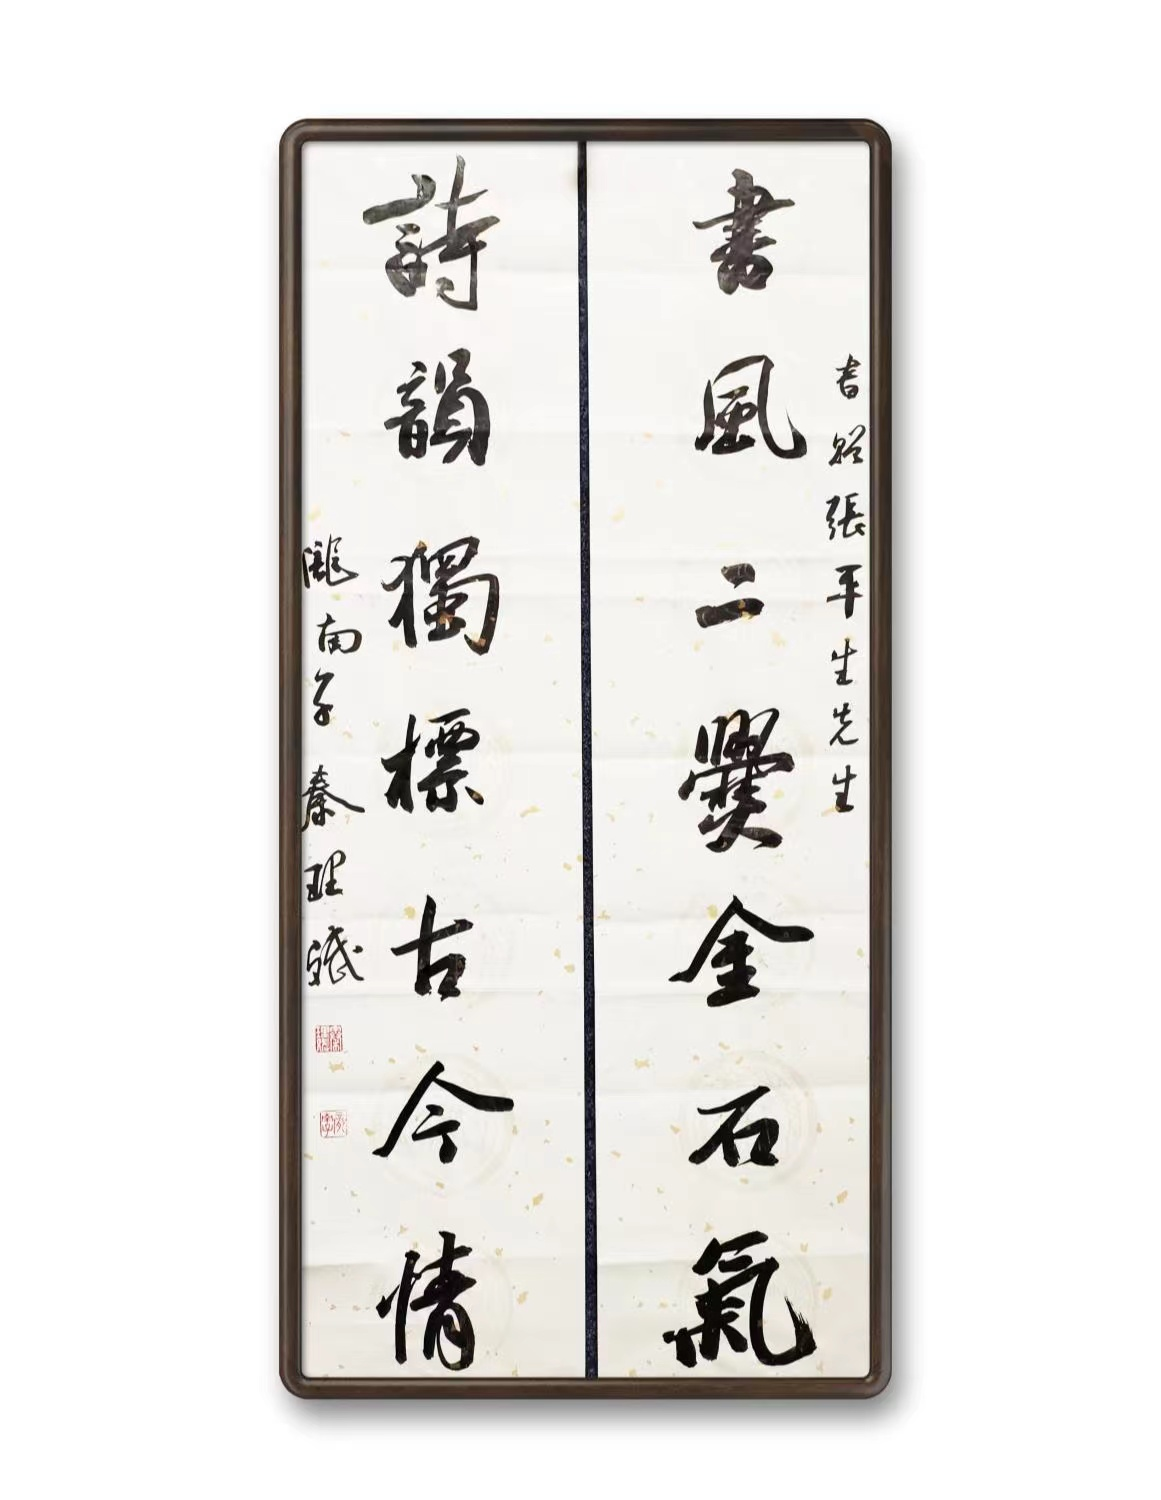 書贈張平生先生
書風二爨金石氣
詩韻獨標古今情
隴南子秦理斌